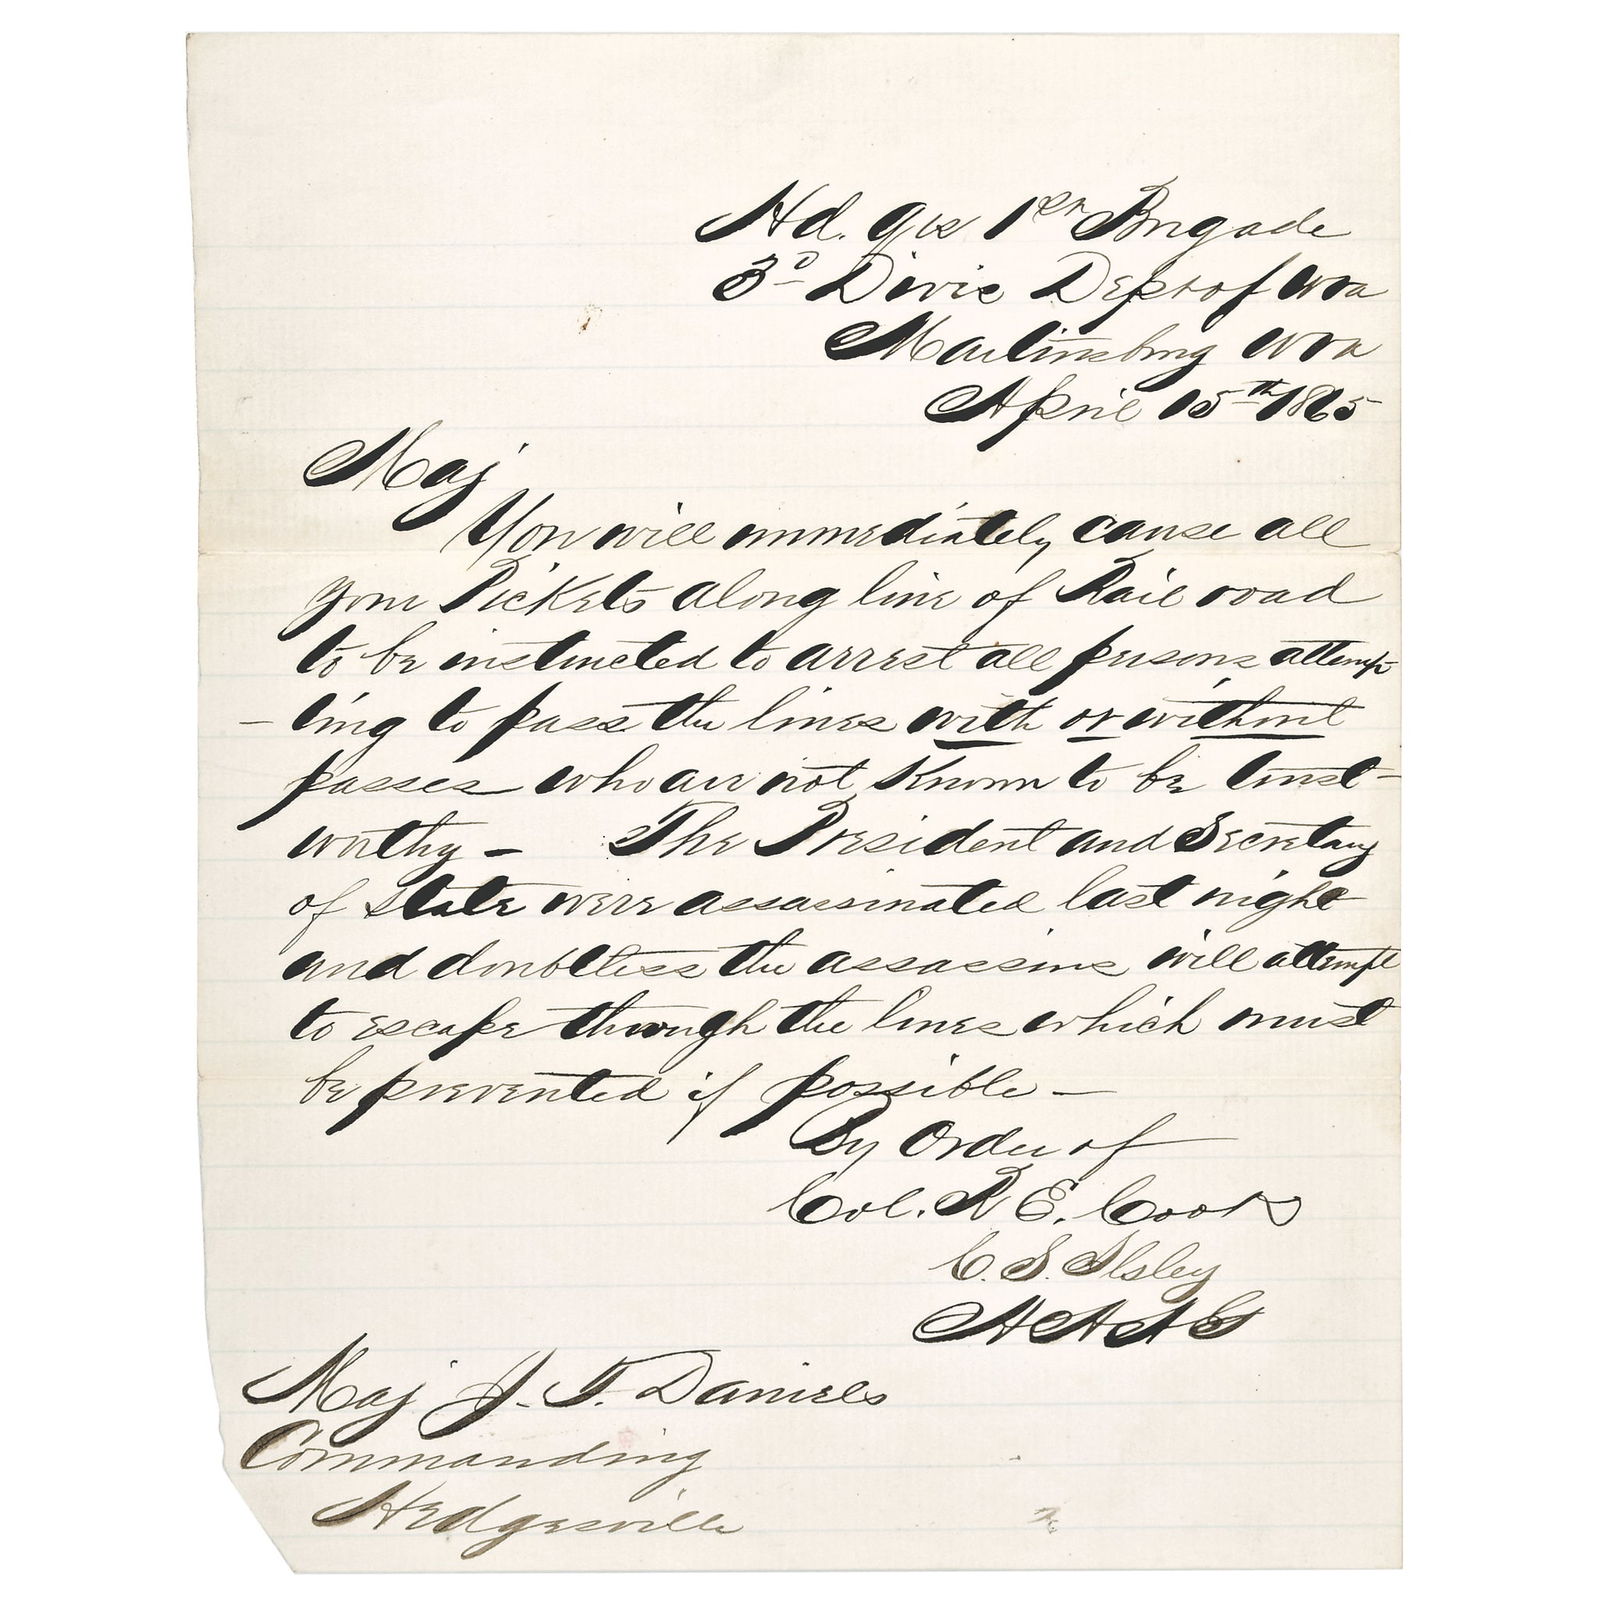 Hd. Qrs 1st Brigade
3d Divis Dept of Wva
Martinsburg Wva
April 15th 1865
Maj
You will immediately cause all
your Pickets along line of Rail road
to be instructed to arrest all persons attemp
-ting to pass the lines with or without
passes who are not Known to be trust-
worthy - The President and Secretary
of state were assassinated last night
and doubtless the assassins will attempt
to escape through the lines which must
be prevented if possible -
By Order of
Col. R E. Cook
C. S. Ilsley
A A A G
Maj J. T. Daniels
Commanding
Hedgesville